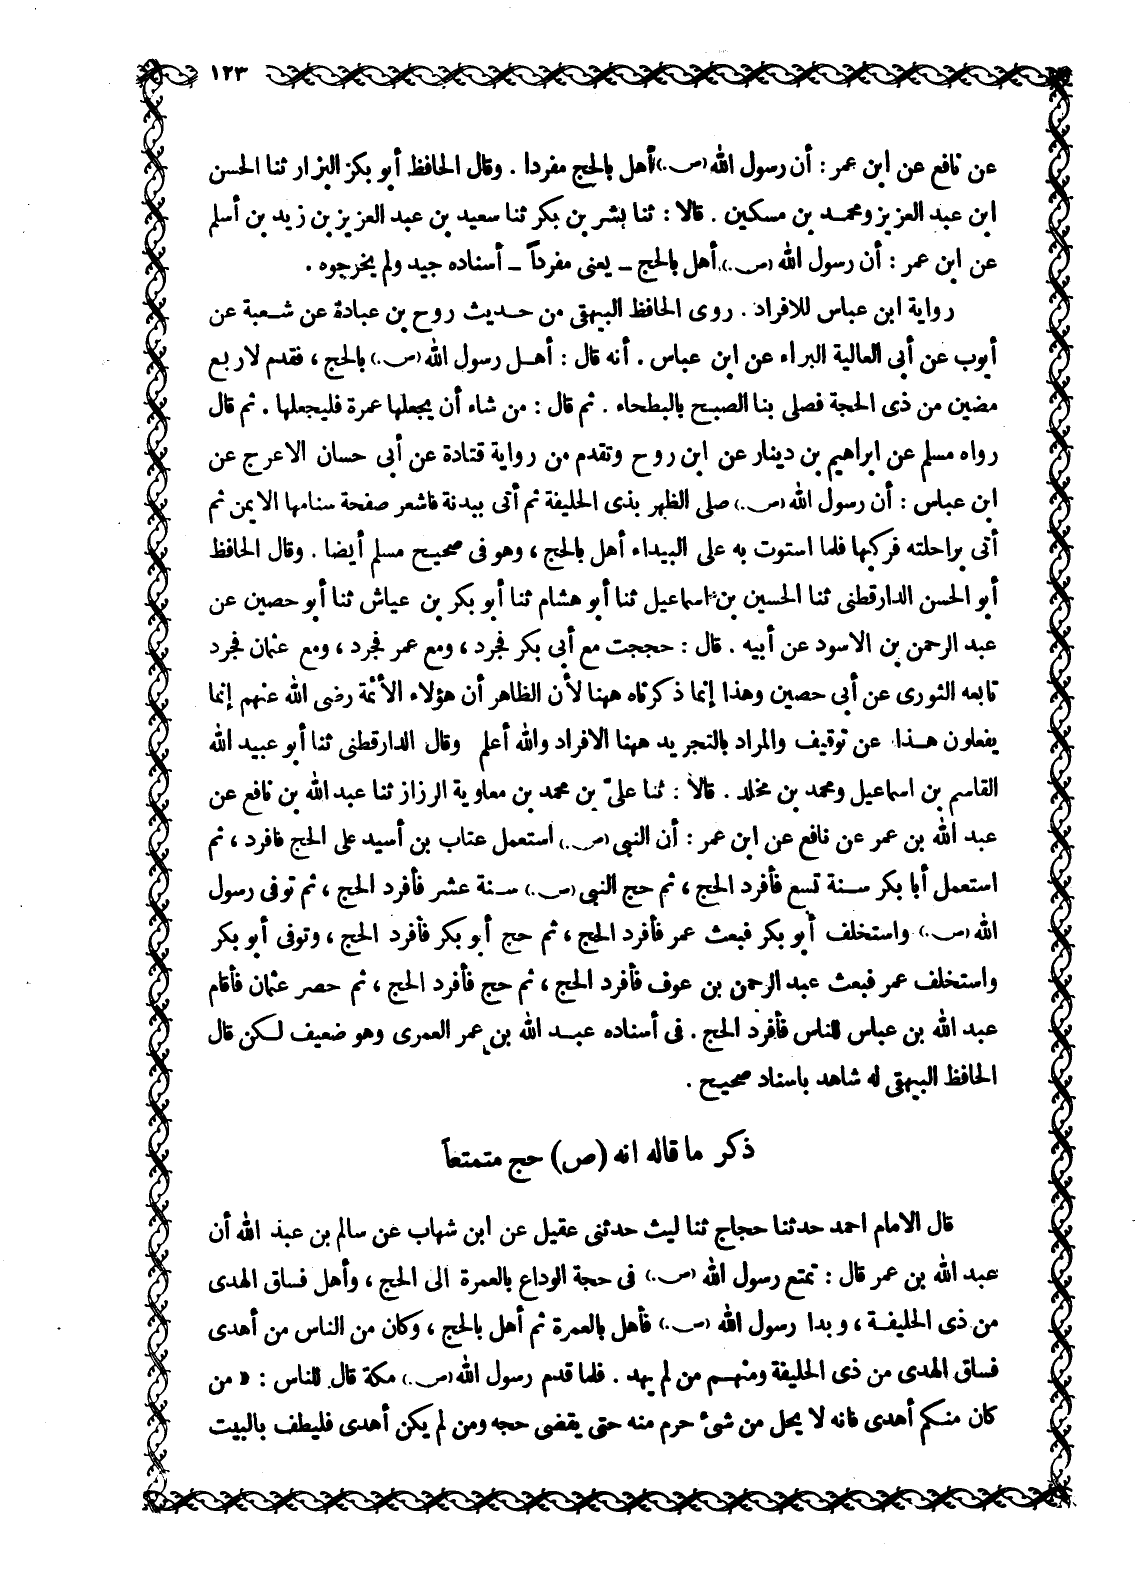 ١٢٣
عن نافع عن ابن عمر : أن رسول الله (ص.) أهل بالحج مفردا . وقال الحافظ أبو بكر البزار ثنا الحسن
ابن عبد العزيز ومحمد بن مسكين . قالا : ثنا بشر بن بكر ثنا سعيد بن عبد العزيز بن زيد بن أسلم
عن ابن عمر : أن رسول الله (ص.) أهل بالحج ـ يعنى مفرداً ـ أسناده جيد ولم يخرجوه .
رواية ابن عباس للافراد . روى الحافظ البيهقى من حديث روح بن عبادة عن شعبة عن
أيوب عن أبى العالية البراء عن ابن عباس . أنه قال : أهل رسول الله (ص.) بالحج ، فقدم لاربع
مضين من ذى الحجة فصلى بنا الصبح بالبطحاء . ثم قال : من شاء أن يجعلها عمرة فليجعلها . ثم قال
رواه مسلم عن ابراهيم بن دينار عن ابن روح وتقدم من رواية قتادة عن أبى حسان الاعرج عن
ابن عباس : أن رسول الله (ص.) صلى الظهر بذى الحليفة ثم أتى ببدنة فاشعر صفحة سنامها الايمن ثم
أتى براحلته فركبها فلما استوت به على البيداء أهل بالحج ، وهو فى صحيح مسلم أيضا . وقال الحافظ
أبو الحسن الدارقطنى ثنا الحسين بن اسماعيل ثنا أبو هشام ثنا أبو بكر بن عياش ثنا أبو حصين عن
عبد الرحمن بن الاسود عن أبيه . قال : حججت مع أبى بكر فجرد ، ومع عمر فجرد ، ومع عثمان فجرد
تابعه الثورى عن أبى حصين وهذا إنما ذكرناه ههنا لأن الظاهر أن هؤلاء الأئمة رضى الله عنهم إنما
يفعلون هذا عن توقيف والمراد بالتجريد ههنا الافراد والله أعلم وقال الدارقطنى ثنا أبو عبيد الله
القاسم بن اسماعيل ومحمد بن مخلد . قالا : ثنا علىّ بن محمد بن معاوية الرزاز ثنا عبد الله بن نافع عن
عبد الله بن عمر عن نافع عن ابن عمر : أن النبى (ص.) استعمل عتاب بن أسيد على الحج فافرد ، ثم
استعمل أبا بكر سنة تسع فأفرد الحج ، ثم حج النبى (ص.) سنة عشر فأفرد الحج ، ثم توفى رسول
الله (ص.) واستخلف أبو بكر فبعث عمر فأفرد الحج ، ثم حج أبو بكر فأفرد الحج ، وتوفى أبو بكر
واستخلف عمر فبعث عبد الرحمن بن عوف فأفرد الحج ، ثم حج فأفرد الحج ، ثم حصر عثمان فأقام
عبد الله بن عباس للناس فأفرد الحج . فى أسناده عبد الله بن عمر العمرى وهو ضعيف لكن قال
الحافظ البيهقى له شاهد باسناد صحيح .
ذكر ما قاله انه (ص) حج متمتعاً
قال الامام احمد حدثنا حجاج ثنا ليث حدثنى عقيل عن ابن شهاب عن سالم بن عبد الله أن
عبد الله بن عمر قال : تمتع رسول الله (ص.) فى حجة الوداع بالعمرة الى الحج ، وأهل فساق الهدى
من ذى الحليفة ، وبدا رسول الله (ص.) فأهل بالعمرة ثم أهل بالحج ، وكان من الناس من أهدى
فساق الهدى من ذى الحليفة ومنهم من لم يهد . فلما قدم رسول الله (ص.) مكة قال للناس : « من
كان منكم أهدى فانه لا يحل من شىء حرم منه حتى يقضى حجه ومن لم يكن أهدى فليطف بالبيت